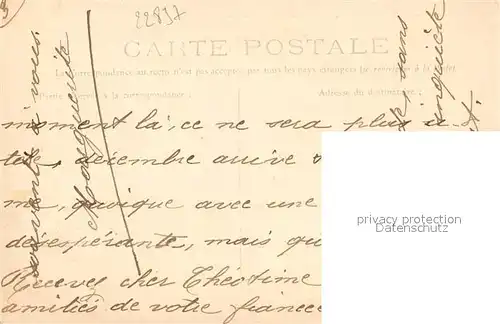 22837
CARTE POSTALE
La correspondance au recto n'est pas acceptée par tous les pays étrangers (se renseigner à la Poste)
à la correspondance
Adresse du destinataire
moment là, ce ne sera plus
tête, décembre arrive
me, quoique avec une
désespérante, mais
Recevez cher Théotime
amitiés de votre fiancée
à vous
Marguerite
sans
inquiète
privacy protection
Datenschutz